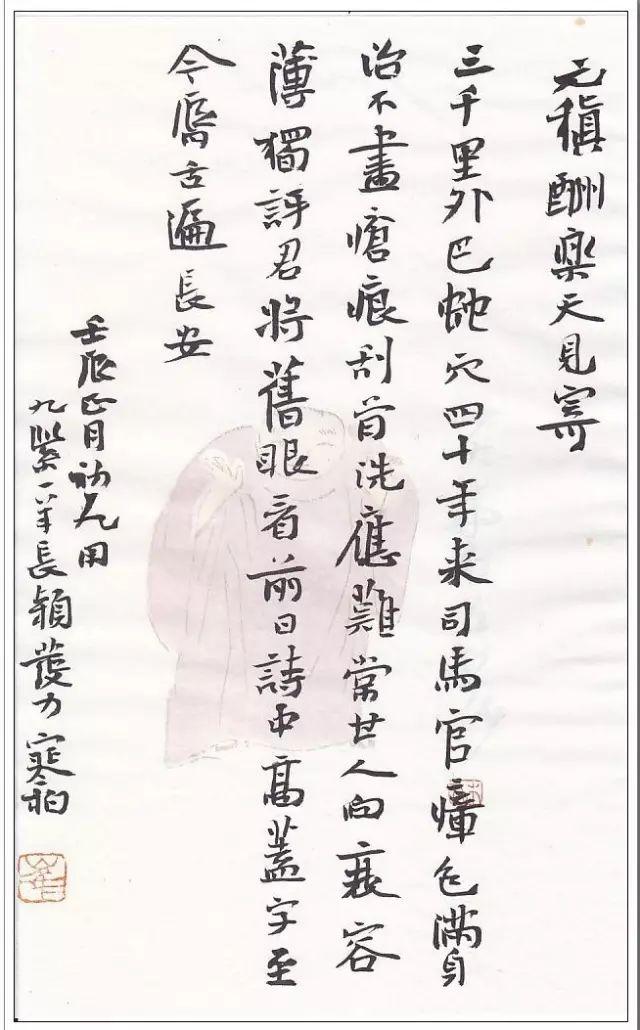 元稹酬樂天見寄
三千里外巴蛇穴四十年来司馬官瘴色滿身
治不盡瘡痕刮骨洗應難常甘人向衰容
薄獨訝君将舊眼看前日詩中高蓋字至
今脣舌遍長安
壬辰正月初九用
九紫一羊長穎 寒柏